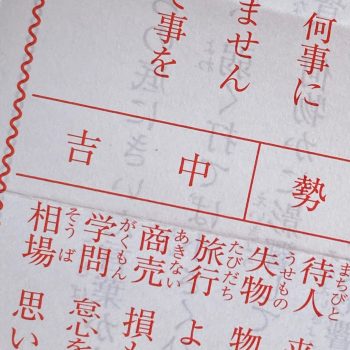 何事に
ません
て事を
勢
中吉
まちびと
待人 来
うせもの
失物 物
たびだち
旅行 よ
あきない
商売 損も
がくもん
学問 怠を
そうば
相場 思い